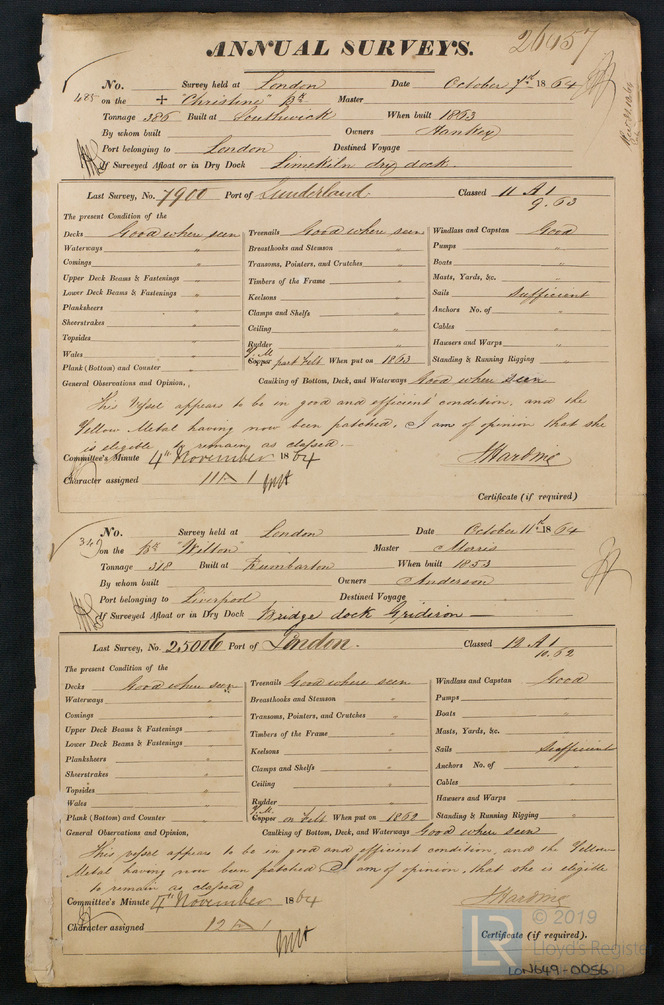 ANNUAL SURVEYS.
26957
No. Survey held at London Date October 7th 1864
485 on the + "Christine" Bk Master
Tonnage 386 Built at Southwick When built 1863
By whom built Owners Hankey
Port belonging to London Destined Voyage
If Surveyed Afloat or in Dry Dock Limekiln dry dock.
Last Survey, No. 7900 Port of Sunderland. Classed 11 A 1
9.63
The present Condition of the
Decks Good where seen Treenails Good where seen Windlass and Capstan Good
Waterways " Breasthooks and Stemson " Pumps "
Comings " Transoms, Pointers, and Crutches " Boats "
Upper Deck Beams & Fastenings " Timbers of the Frame " Masts, Yards, &c. "
Lower Deck Beams & Fastenings " Keelsons " Sails Sufficient
Planksheers " Clamps and Shelfs " Anchors No. of "
Sheerstrakes " Ceiling " Cables "
Topsides " Rudder " Hawsers and Warps "
Wales " Y.M. Copper part felt When put on 1863 Standing & Running Rigging "
Plank (Bottom) and Counter " Caulking of Bottom, Deck, and Waterways Good where seen
General Observations and Opinion,
This Vessel appears to be in good and efficient condition, and the
Yellow Metal having now been patched, I am of opinion that she
is eligible to remain as classed.
Committee's Minute 4th November 1864
Character assigned 11 A 1
Certificate (if required)
No. Survey held at London Date October 11th 1864
349 on the Bk "Wilton" Master Morris
Tonnage 318 Built at Dumbarton When built 1853
By whom built Owners Anderson
Port belonging to Liverpool Destined Voyage
If Surveyed Afloat or in Dry Dock Bridge dock Gridiron
Last Survey, No. 25006 Port of London. Classed 12 A 1
10.62
The present Condition of the
Decks Good where seen Treenails Good where seen Windlass and Capstan Good
Waterways " Breasthooks and Stemson " Pumps "
Comings " Transoms, Pointers, and Crutches " Boats "
Upper Deck Beams & Fastenings " Timbers of the Frame " Masts, Yards, &c. "
Lower Deck Beams & Fastenings " Keelsons " Sails Sufficient
Planksheers " Clamps and Shelfs " Anchors No. of "
Sheerstrakes " Ceiling " Cables "
Topsides " Rudder " Hawsers and Warps "
Wales " Y.M. Copper on felt When put on 1862 Standing & Running Rigging "
Plank (Bottom) and Counter " Caulking of Bottom, Deck, and Waterways Good where seen
General Observations and Opinion,
This vessel appears to be in good and efficient condition, and the Yellow
Metal having now been patched I am of opinion, that she is eligible
to remain as classed
Committee's Minute 4th November 1864
Character assigned 12 A 1
Certificate (if required).
LR © 2019
Lloyd's Register
Foundation
LON649-0056